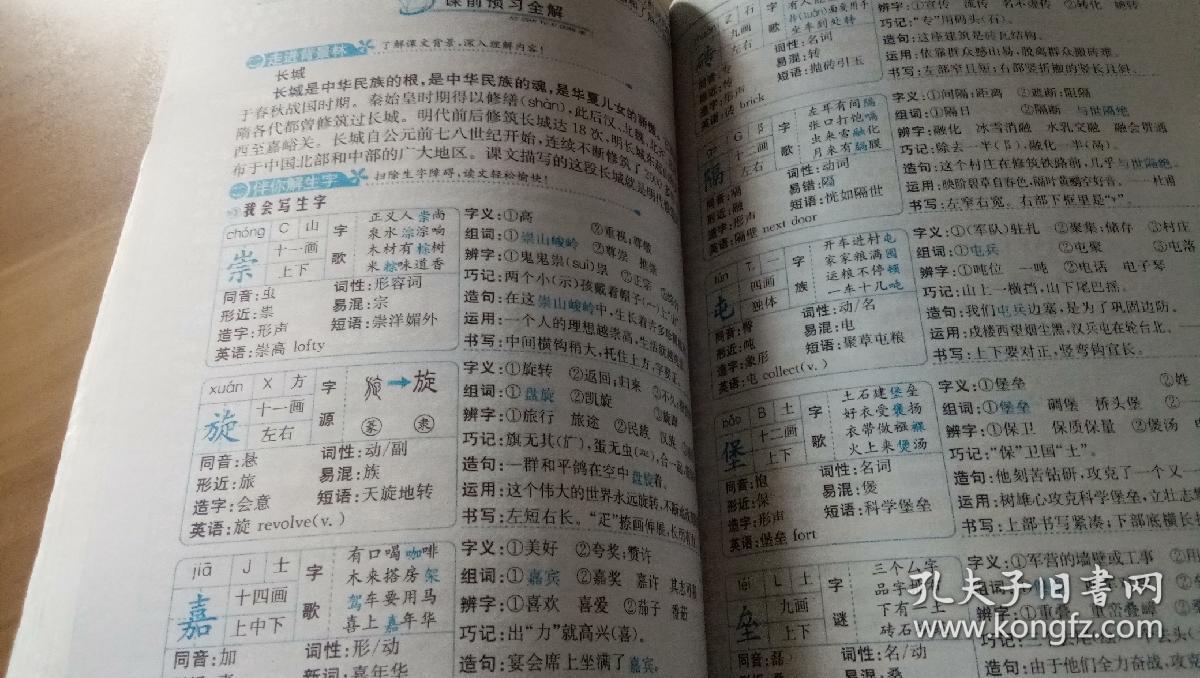 课前预习全解
走进背景林 了解课文背景,深入理解内容!
长城
长城是中华民族的根,是中华民族的魂,是华夏儿女的骄傲。
于春秋战国时期。秦始皇时期得以修缮(shàn),此后汉、北魏、北齐
隋各代都曾修筑过长城。明代前后修筑长城达18次,明长城东起
西至嘉峪关。长城自公元前七八世纪开始,连续不断修筑了2000多
布于中国北部和中部的广大地区。课文描写的这段长城就是明代修
伴你解生字 扫除生字障碍,读文轻松愉快!
我会写生字
chóng C 山
崇 十一画
上下
字歌
正义人崇尚
泉水淙淙响
木材有棕树
米粽味道香
同音:虫 词性:形容词
形近:祟 易混:宗
造字:形声 短语:崇洋媚外
英语:崇高 lofty
字义:①高 ②重视;尊敬
组词:①崇山峻岭 ②尊崇 推崇
辨字:①鬼鬼祟(suì)祟 ②正宗
巧记:两个小(示)孩戴着帽子(宀)上
造句:在这崇山峻岭中,生长着许多
运用:一个人的理想越崇高,生活就越
书写:中间横钩稍大,托住上方,字要正。
xuán X 方
旋 十一画
左右
字源
旋
篆 隶
同音:悬 词性:动/副
形近:旅 易混:族
造字:会意 短语:天旋地转
英语:旋 revolve(v.)
字义:①旋转 ②返回;归来 ③不久
组词:①盘旋 ②凯旋 ③旋即
辨字:①旅行 旅途 ②民族 汉族
巧记:旗无其(𭤨),蛋无虫(疋),合一起
造句:一群和平鸽在空中盘旋着。
运用:这个伟大的世界永远旋转,不断
书写:左短右长。“疋”捺画伸展,长
jiā J 士
嘉 十四画
上中下
字歌
有口喝咖啡
木来搭房架
驾车要用马
喜上嘉年华
同音:加 词性:形/动
新词:嘉年华
字义:①美好 ②夸奖;赞许
组词:①嘉宾 ②嘉奖 嘉许 其志可嘉
辨字:①喜欢 喜爱 ②茄子 番茄
巧记:出“力”就高兴(喜)。
造句:宴会席上坐满了嘉宾。
砖
石
九画
左右
歌
坐车到处转
词性:名词
易混:转
造字:形声 短语:抛砖引玉
brick
辨字:①宣传 流传 名不虚传 ②转化 婉转
巧记:“专”用码头(石)。
造句:这座建筑是砖瓦结构。
运用:依靠群众感出易,脱离群众搬砖难。
书写:左部窄且短;右部竖折撇的竖长且斜。
G 阝
隔 十二画
左右
字歌
左耳有间隔
张口打饱嗝
虫来雪融化
月来有膈膜
词性:动词
形近:融 易错:隔
造字:形声 短语:恍如隔世
英语:隔壁 next door
字义:①间隔;距离 ②遮断;阻隔
组词:①隔日 ②隔断 与世隔绝
辨字:融化 冰雪消融 水乳交融 融会贯通
巧记:除去一半(阝),融化一半(鬲)。
造句:这个村庄在修筑铁路前,几乎与世隔绝。
运用:映阶碧草自春色,隔叶黄鹂空好音。——杜甫
书写:左窄右宽。右部下框里是“丷”。
tún
屯 四画
独体
字族
开车进村屯
家家粮满囤
运粮不停顿
一车十几吨
同音:臀 词性:动/名
形近:吨 易混:电
造字:象形 短语:聚草屯粮
英语:屯 collect(v.)
字义:①(军队)驻扎 ②聚集;储存 ③村庄
组词:①屯兵 ②屯聚 ③屯落
辨字:①吨位 一吨 ②电话 电子琴
巧记:山上一横挡,山下尾巴摇。
造句:我们屯兵边塞,是为了巩固边防。
运用:戍楼西望烟尘黑,汉兵屯在轮台北。
书写:上下要对正,竖弯钩宜长。
bǎo B 土
堡 十二画
上下
字歌
土石建堡垒
好衣受褒扬
衣带做襁褓
火上来煲汤
同音:抱 词性:名词
形近:保 易混:煲
造字:形声 短语:科学堡垒
英语:堡垒 fort
字义:①堡垒
组词:①堡垒 碉堡 桥头堡
辨字:①保卫 保质保量 ②煲汤
巧记:“保”卫国“土”。
造句:他刻苦钻研,攻克了一个又一
运用:树雄心攻克科学堡垒,立壮志
书写:上部书写紧凑;下部底横长
lěi L 土
垒 九画
上下
字谜
三个厶字
下有一土
同音:磊 词性:名/动
字义:①军营的墙壁或工事 ②用
造句:由于他们全力奋战,攻克
孔夫子旧书网
www.kongfz.com